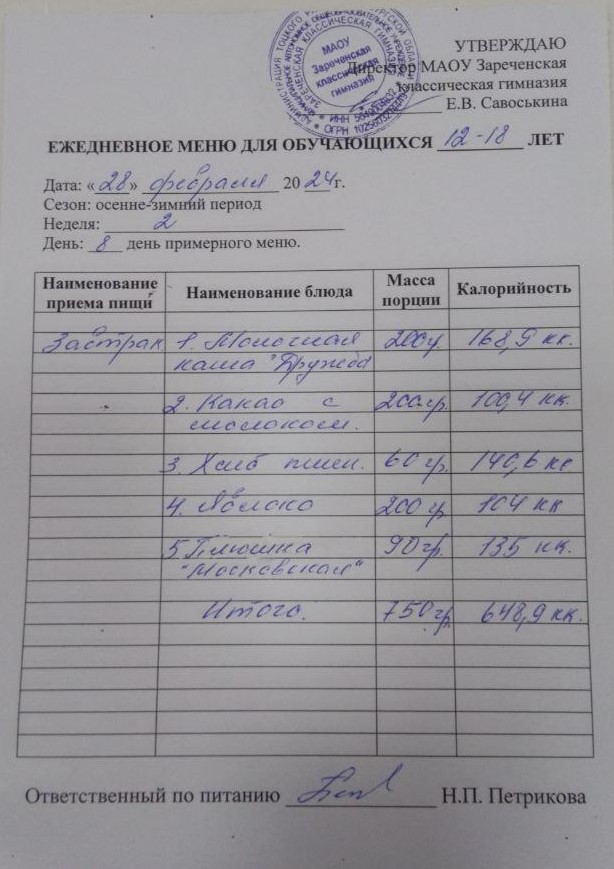 МАОУ
Зареченская
классическая
гимназия
УТВЕРЖДАЮ
Директор МАОУ Зареченская
классическая гимназия
Е.В. Савоськина
ЕЖЕДНЕВНОЕ МЕНЮ ДЛЯ ОБУЧАЮЩИХСЯ 12-18 ЛЕТ
Дата: «28» февраля 2024г.
Сезон: осенне-зимний период
Неделя: 2
День: 8 день примерного меню.
Наименование приема пищи Наименование блюда Масса порции Калорийность
Завтрак 1. Молочная 200гр. 168,9 кк.
каша "Дружба
2. Какао с 200гр. 100,4 кк.
молоком.
3. Хлеб пшен. 60 гр. 140,6 кк
4. Яблоко 200 гр 104 кк
5. Плюшка 90 гр. 135 кк.
"Московская"
Итого. 750 гр. 648,9 кк.
Ответственный по питанию Н.П. Петрикова